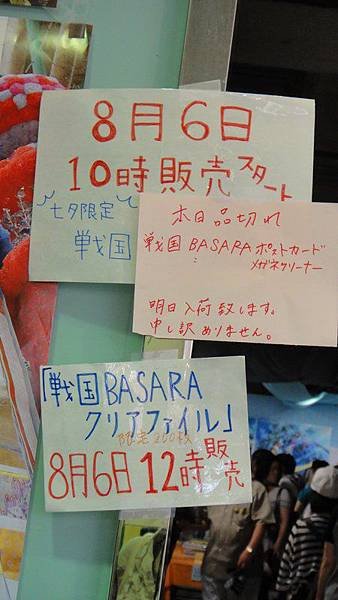 8月6日
10時販売スタート
七夕限定
戦国
本日品切れ
戦国BASARAポストカード
メガネクリーナー
明日入荷致します。
申し訳ありません。
「戦国BASARA
クリアファイル」
限定200枚
8月6日12時販売